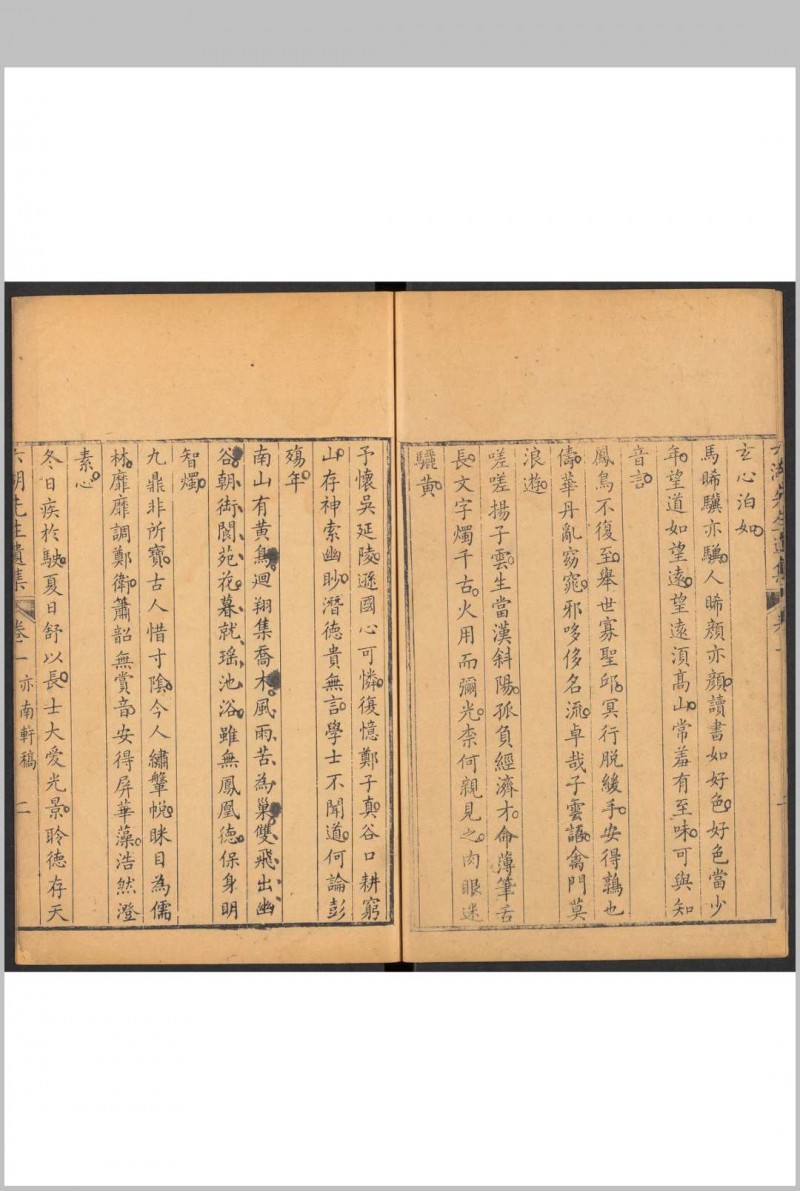 玄心泊如
馬晞驥亦驥人晞顏亦顏讀書如好色好色當少
年望道如望遠望遠須髙山常羞有至味可與知
音言
鳳鳥不復至舉世寡聖邱冥行脱緩手安得鶉也
儔華丹亂窈窕邪哆侈名流卓哉子雲語禽門莫
浪遊
嗟嗟揚子雲生當漢斜陽孤負經濟才侖薄筆舌
長文字燭千古火用而彌光柰何親見之肉眼迷
驪黄
予懷吳延陵遜國心可憐復憶鄭子真谷口耕窮
山存神索幽眇潛德貴無言學士不聞道何論彭
殤年
南山有黄鳥迴翔集喬木風雨苦為巢雙飛出幽
谷朝銜閬苑花暮就瑶池浴雖無鳳凰德保身明
智燭
九鼎非所寶古人惜寸陰今人繡鞶帨眯目為儒
林靡靡調鄭衛簫韶無賞音安得屏華藻浩然澄
素心
冬日疾於駛夏日舒以長士大愛光景聆德存天
六湖先生遺集 卷一 亦南軒稿 二